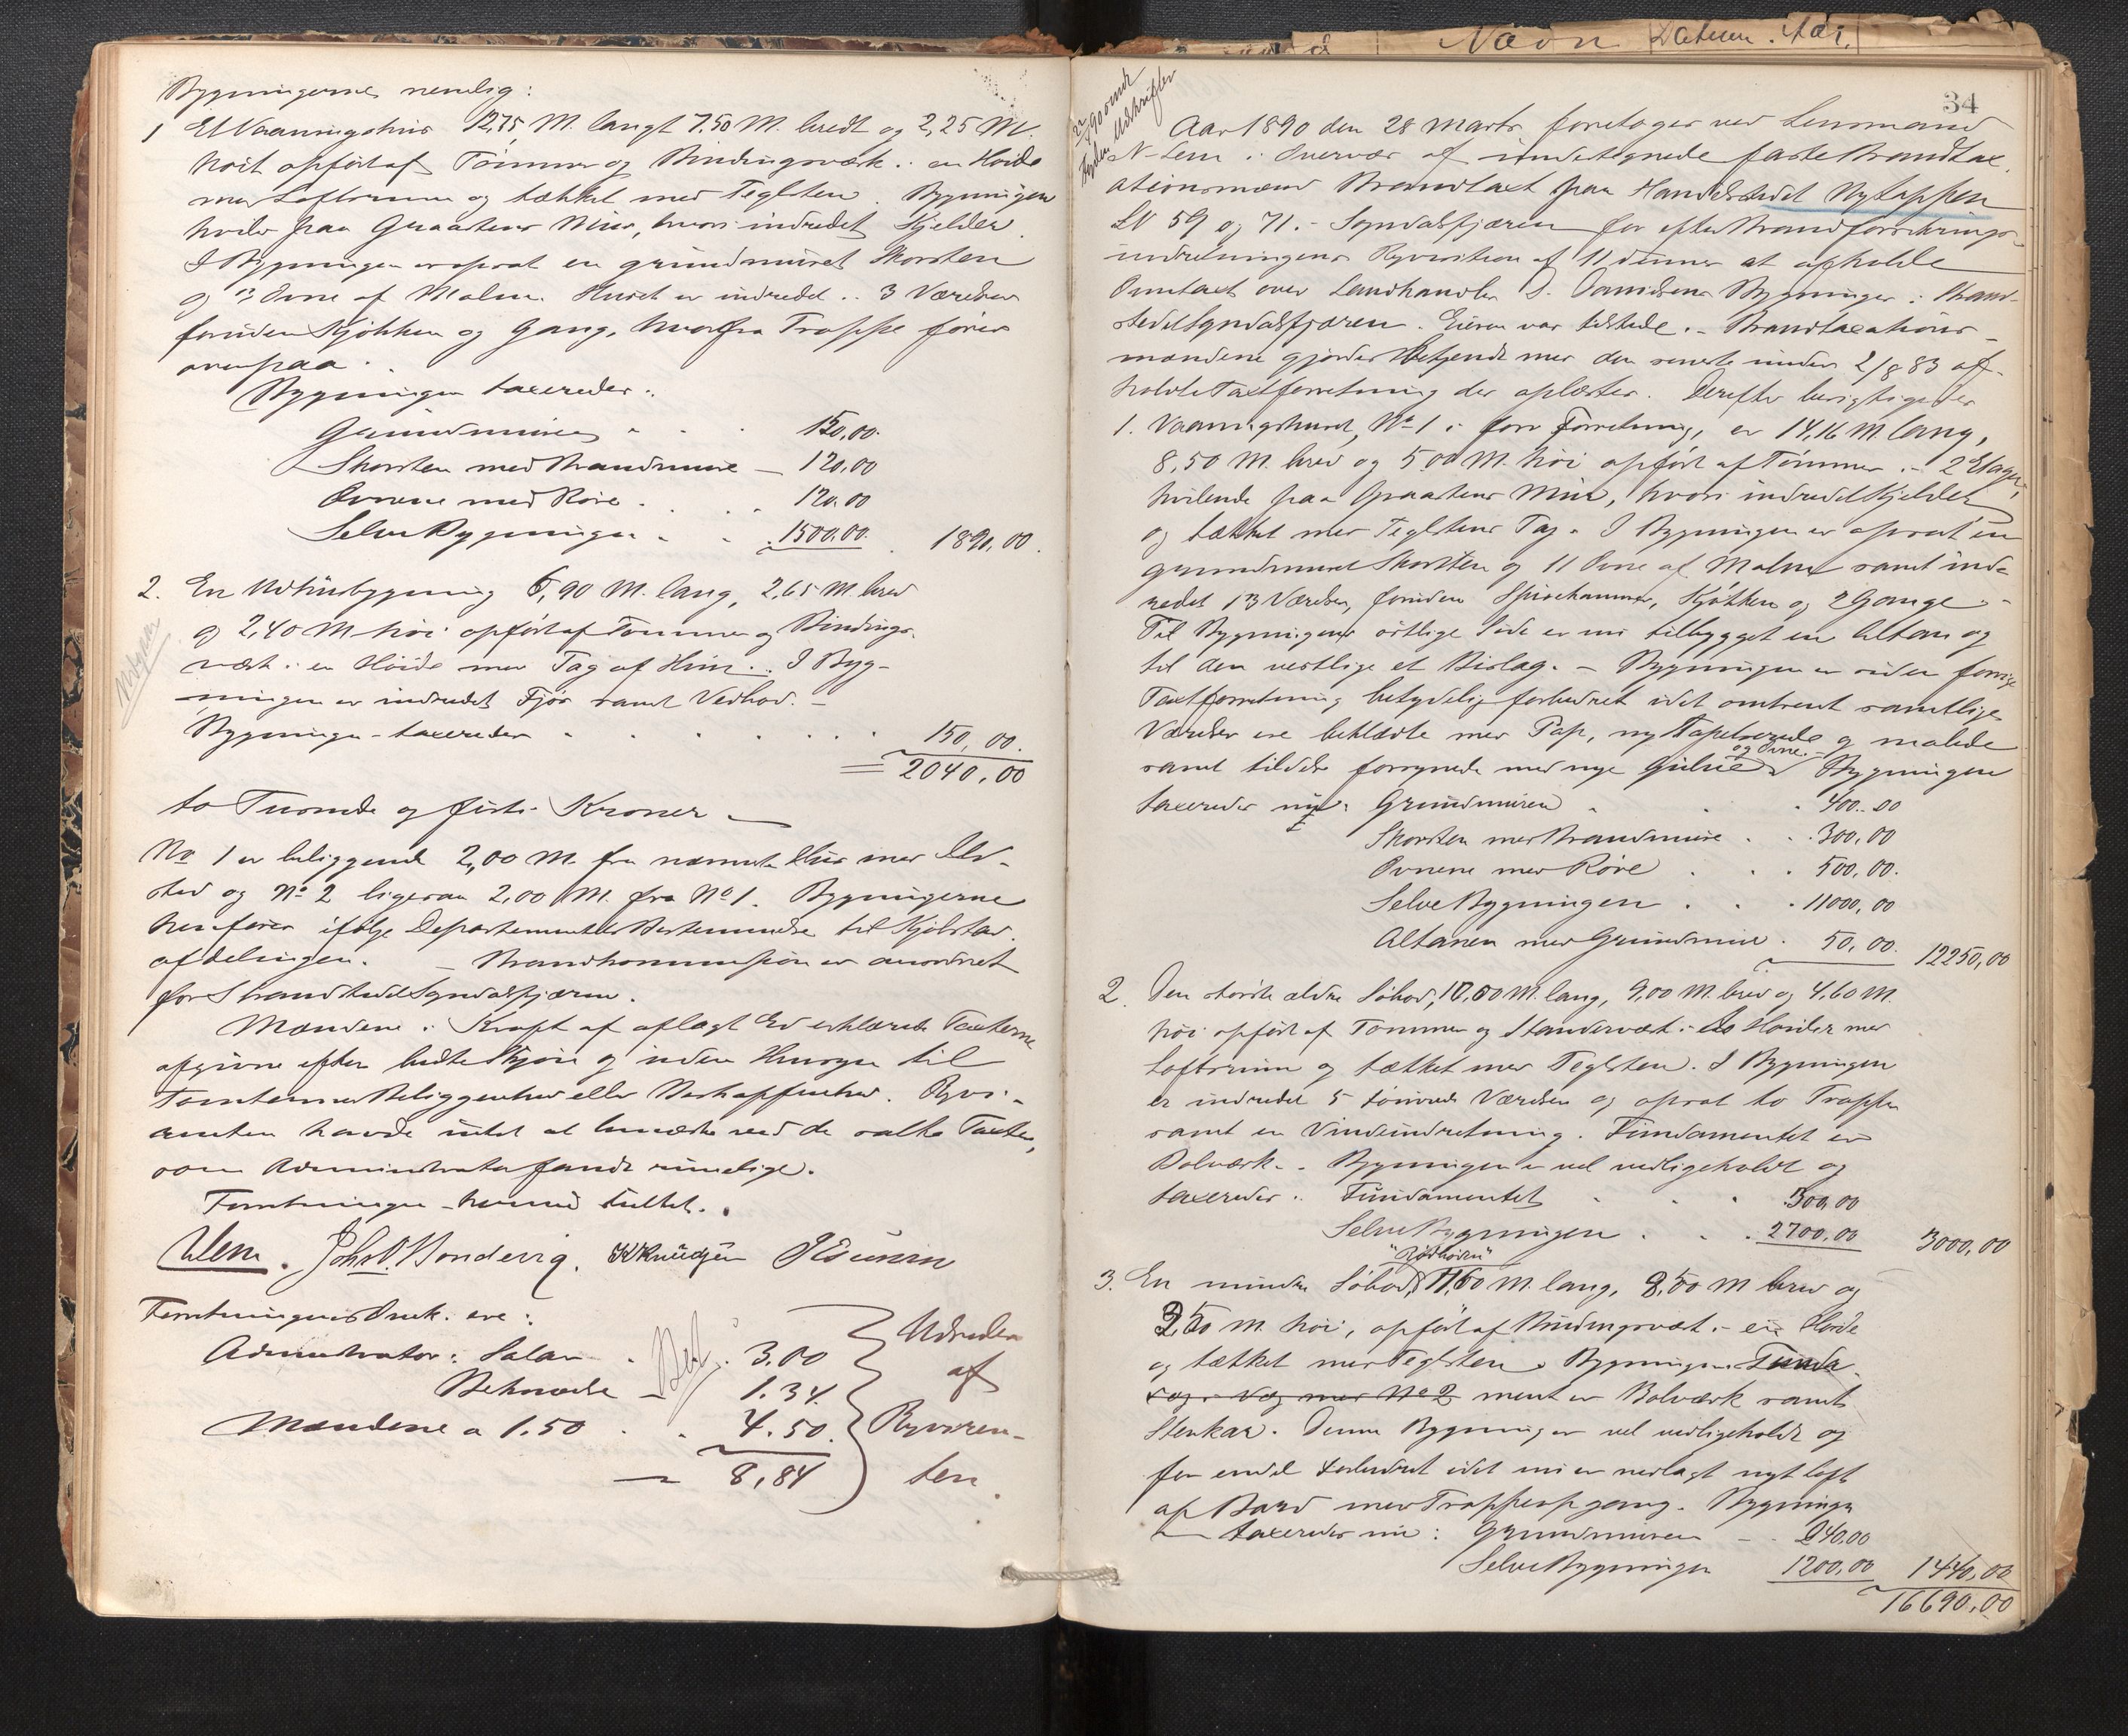 Bygningerne nemlig:
1 Et Vaaningshus 12,75 M. langt 7,50 M. bredt og 2,25 M.
höit opført af Tømmer og Bindingsværk i en Høide
med Loftsrum og tækket med Teglsten. Bygningen
hviler paa Graastens Mur, hvori indredet Kjelder.
I Bygningen er opsat en grundmuret Skorsten
og 3 Ovne af Malm. Huset er indredet i 3 Værelser
foruden Kjøkken og Gang, hvorfra Trappe fører
ovenpaa.
Bygningen taxeredes:
Grundmuren 150,00.
Skorsten med Brandmure — 120,00
Ovnene med Røre 120,00
Selve Bygningen 1500,00. 1890,00.
2. En Udhusbygning 6,90 M. lang, 2,65 M. bred
og 2,40 M høi opført af Tømmer og Bindings-
værk i en Høide med Tag af Hun. I Byg-
ningen er indredet Fjøs samt Vedbod. –
Bygningen taxeredes 150,00.
= 2040,00
to Tusinde og førti Kroner
No 1 er beliggende 2,00 M. fra nærmeste Hus med Ild-
sted og No 2 ligesaa 2,00 M. fra No 1. Bygningerne
henføres ifølge Departementets Bestemmelse til Kjøbstad-
afdelingen. – Brandkommission er anordnet
for Strandstedet Sogndalsfjæren.
Mændene i Kraft af aflagt Ed erklærede Taxterne
afgivne efter bedste Skjøn og uden Hensyn til
Tomternes Beliggenhed eller Beskaffenhed. Rekvi-
renten havde intet at bemærke ved de satte Taxter,
som Administrator fandt rimelige.
Forretningen hermed sluttet.
NLem. Johs O. Hondevig. KKnudsen
Forretningens Omk. ere:
Administrator: Salær 3.00
Betl
1.34.
Mændene a 1.50 4.50.
= 8,84
Udredes
af
Rekviren-
ten.
34
Nævn Datum. Aar.
Aar 1890 den 28 Marts foretoges ved Lensmand
N. Lem i Overvær af undertegnede faste Brandtax-
ationsmænd Brandtaxt paa Handelsstedet Nytappen
LN 59 og 71 i Sogndalsfjæren for efter Brandforsikrings-
indretningens Rekvisition af 11 dennes at afholde
Omtaxt over Landhandler D. Danielsens Bygninger i Strand-
stedet Sogndalsfjæren. Eieren var tilstede. – Brandtaxations-
mændene gjordes bekjendt med den seneste under 2/8 83 af-
holdte Taxtforretning der oplæstes. Derefter besigtigedes
1. Vaaningshuset, No 1 i forr. Forretning, er 14,16 M. lang,
8,50 M. bred og 5,00 M. høi opført af Tømmer i 2 Etager,
hvilende paa Graastens Mur, hvori indredet Kjelder
og tækket med Teglstens Tag. I Bygningen er opsat en
grundmuret Skorsten og 11 Ovne af Malm samt ind-
redet 13 Værelser, foruden Spisekammer, Kjøkken og 2 Gange. –
Til Bygningens østlige Side er nu tilbygget en Altan og
til den vestlige et Bislag. – Bygningen er siden forrige
Taxtforretning betydelig forbedret idet omtrent samtlige
Værelser ere beklædte med Pap, ny Tapetserede og malede
samt tildels forsynede med nye Gulve og Ovne. Bygningen
taxeredes nu: Grundmuren 400,00
Skorsten med Brandmure 300,00
Ovnene med Røre 500,00.
Selve Bygningen 11000,00
Altanen med Grundmur 50,00. 12250,00
2. Den største ældre Søbod, 10,60 M. lang, 9,00 M. bred og 4,60 M.
høi opført af Tømmer og Standerværk i to Høider med
Loftsrum og tækket med Teglsten. I Bygningen
er indredet 5 tømrede Værelser og opsat to Trapper
samt en Vindeindretning. Fundamentet er
Bolværk. – Bygningen er vel vedligeholdt og
taxeredes: Fundamentet 300,00
Selve Bygningen 2700,00 3000,00
3. En mindre Søbod, "Rødboden" 11,60 M. lang, 8,50 M bred og
3,50 M. høi, opført af Bindingsværk i en Høide
og tækket med Teglsten. Bygningens Funda-
ment er Bolværk samt
Stenkar. Denne Bygning er vel vedligeholdt og
for endel forbedret idet nu er nedlagt nyt loft
af Bord med Trappeopgang. Bygningen
taxeredes nu: Grundmuren — 240,00
Selve Bygningen 1200,00 1440,00
16690,00